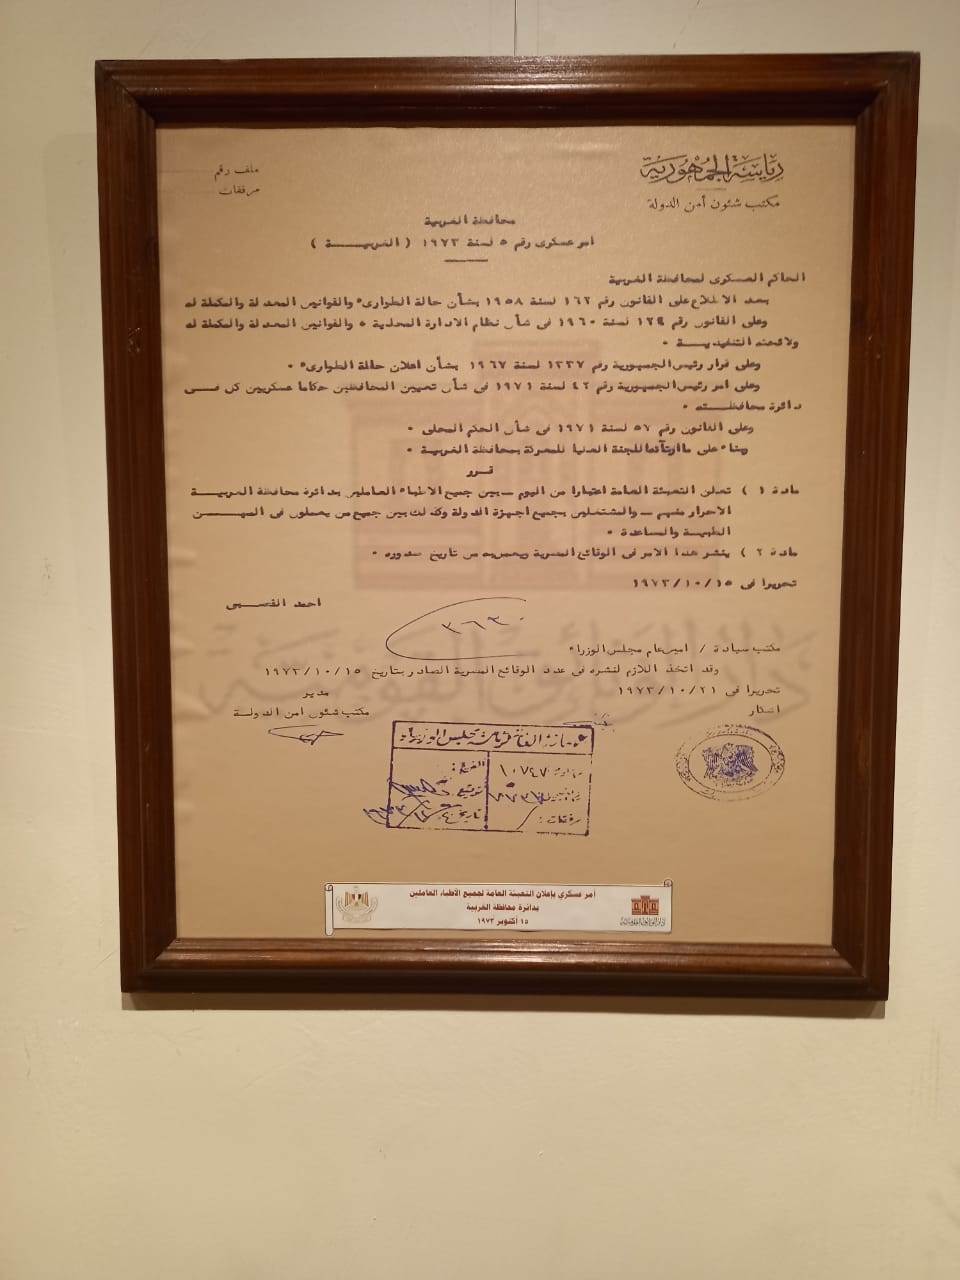 رياسة الجمهورية
مكتب شئون أمن الدولة
ملف رقم
مرفقات
محافظة الغربية
أمر عسكرى رقم ٥ لسنة ١٩٧٣ ( الغربيـــة )
الحاكم العسكرى لمحافظة الغربية
بعد الاطلاع على القانون رقم ١٦٢ لسنة ١٩٥٨ بشأن حالة الطوارىء والقوانين المعدلة والمكملة له
وعلى القانون رقم ١٢٤ لسنة ١٩٦٠ فى شأن نظام الادارة المحلية ٠ والقوانين المعدلة والمكملة له
ولائحته التنفيذيـــة ٠
وعلى قرار رئيس الجمهورية رقم ١٣٣٧ لسنة ١٩٦٧ بشأن اعلان حالة الطوارىء ٠
وعلى امر رئيس الجمهورية رقم ٤٢ لسنة ١٩٧١ فى شأن تعيين المحافظين حكاما عسكريين كل فــى
دائرة محافظتــه ٠
وعلى القانون رقم ٥٧ لسنة ١٩٧١ فى شأن الحكم المحلى ٠
وبناء على ما ارتأته اللجنة العليا للمعركة بمحافظة الغربية ٠
قــرر
مادة ١ ) تعلن التعبئة العامة اعتبارا من اليوم ــ بين جميع الاطباء العاملين بدائرة محافظة الغربيــة
الاحرار منهم ــ والمشتغلين بجميع اجهزة الدولة وكذلك بين جميع من يعملون فى المهــن
الطبية والمساعدة ٠
مادة ٢ ) ينشر هذا الامر فى الوقائع المصرية ويعمل به من تاريخ صدوره ٠
تحريرا فى ١٩٧٣/١٠/١٥
احمد القصــبى
٣٦٣٠
مكتب سيادة / امين عام مجلس الوزراء
وقد اتخذ اللازم لنشره فى عدد الوقائع المصرية الصادر بتاريخ ١٩٧٣/١٠/١٥
تحريرا فى ١٩٧٣/١٠/٢١
مدير
مكتب شئون امن الدولة
مجلس الوزراء
١٠٧٤٧
توقيع
تاريخ
مرفقات :
أمر عسكري بإعلان التعبئة العامة لجميع الأطباء العاملين
بدائرة محافظة الغربية
١٥ أكتوبر ١٩٧٣
دار الوثائق القومية